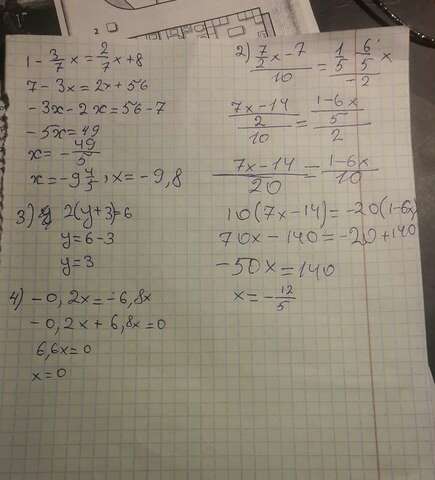 1 - 3/7 x = 2/7 x + 8
7 - 3x = 2x + 56
-3x - 2x = 56 - 7
-5x = 49
x = - 49/5
x = -9 4/5, x = -9,8
3) 2(y+3)=6
y = 6-3
y = 3
4) -0,2x = -6,8x
-0,2x + 6,8x = 0
6,6x = 0
x = 0
2) (7/2 x - 7)/10 = (1/5 6/5 x)/-2
((7x-14)/2)/10 = ((1-6x)/5)/2
(7x-14)/20 = (1-6x)/10
10(7x-14) = -20(1-6x)
70x - 140 = -20 + 140
-50x = 140
x = - 12/5